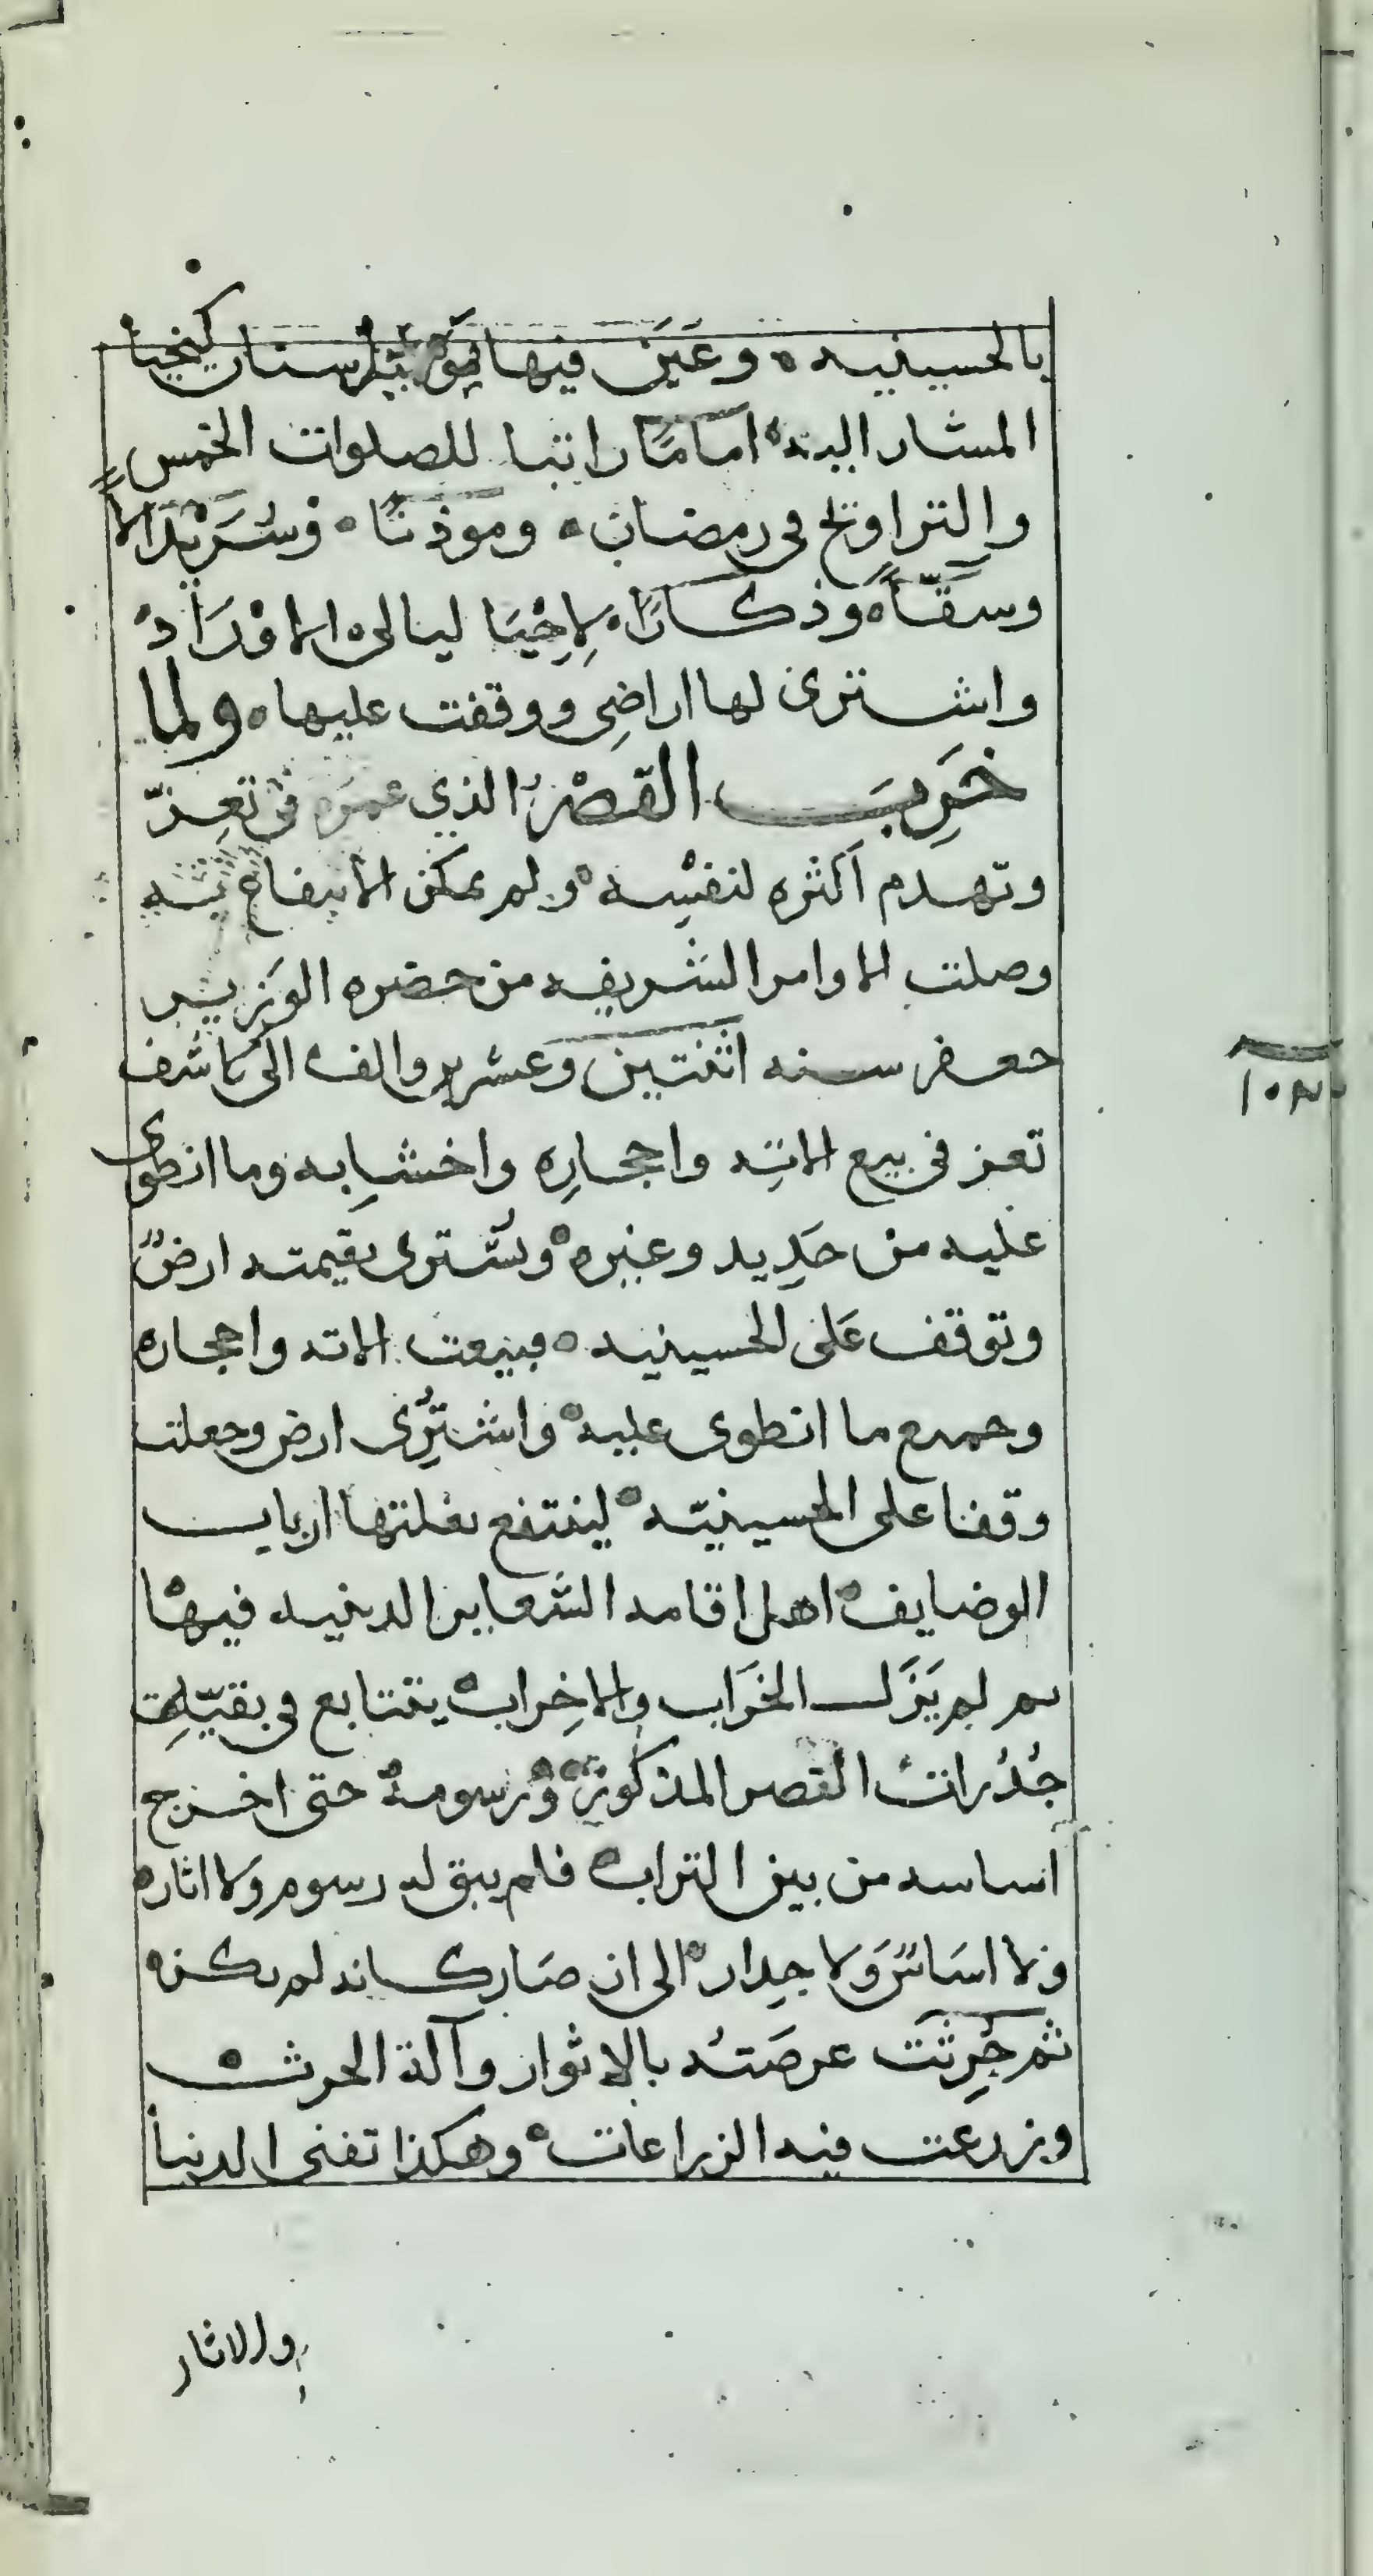 بالحسينيه ٥ وعَيَّن فيها سنان كيخيا
المشار اليه امامًا راتبا للصلوات الخمس
والتراويح في رمضان ٥ وموذنًا ٥ وسُرَيْدَارًا
وسَقَّاءً ٥ وذكارًا ٥ لِإحْيَا ليالي الافرَاد
واشترى لها اراضِي ووقفت عليها ٥ ولما
خَرِبَ القصْر الذي عمره في تعِزّ
وتهدم اكثره لنفسه ٥ ولم يمكن الانتفاع به
وصلت الاوامر الشريفه من حضره الوَزير
جعفر سنه اثنتين وعشرين والف الى كاشف
تعز في بيع الاته واحجارِه واخشابِه وما انطوى
عليه من حَدِيد وغيره ٥ ويشترى بقيمته ارضٌ
وتوقف عَلى الحسينيه ٥ فبيعت الاته واحجاره
وجميع ما انطوى عليه ٥ واشتُرِى ارض وجعلت
وقفا على الحسينيّه ٥ لينتفع بغلتها ارباب
الوضايف ٥ اهل اقامه الشعاير الدينيه فيها
ثم لم يَزَل الخَراب والاخِراب يتتابع في بقيّة
جُدُرات القصر المذكور ٥ ورسومه حتى اخرج
اساسه من بين التراب ٥ فلم يبق له رسوم ولا اثاره
ولا اسَاسٌ وَلا جِدار ٥ الى ان صَار كانه لم يكن ٥
ثم حُرِثَت عرصَتُه بالاثوار وآلة الحرث ٥
وزرعت فيه الزراعات ٥ وهكذا تفنى الدنيا
والاثار